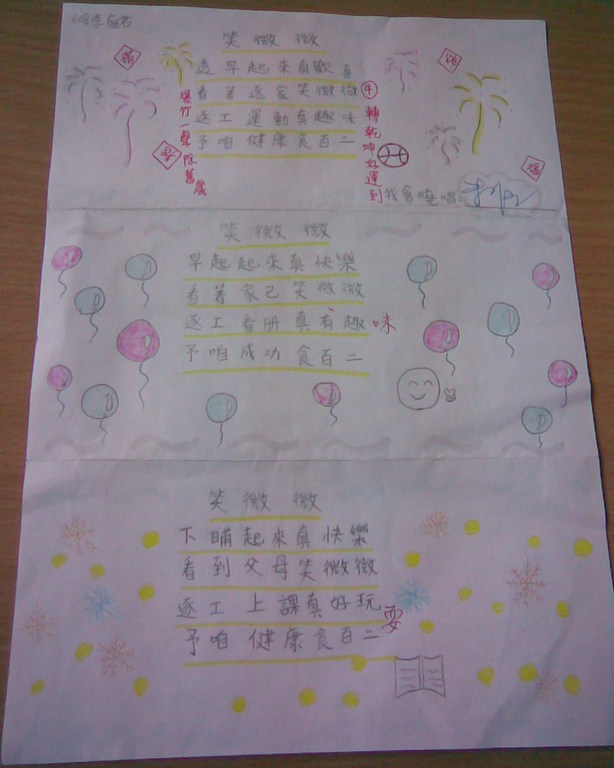 笑微微
透早起來真歡喜
看著逐家笑微微
逐工運動真趣味
予咱健康食百二
爆竹一聲除舊歲
牛轉乾坤好運到
福
我會曉唱
笑微微
早起起來真快樂
看著家己笑微微
逐工看冊真有趣味
予咱成功食百二
笑微微
下晡起來真快樂
看到父母笑微微
逐工上課真好玩耍
予咱健康食百二